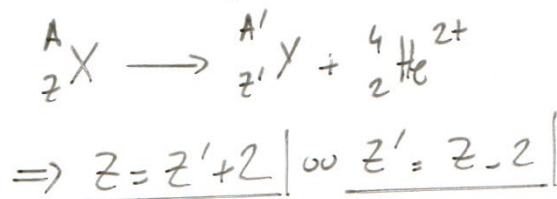 ^A_Z X ⟶ ^A'_Z' Y + ^4_2 He^2+
⇒ Z = Z' + 2 | ou Z' = Z - 2 |